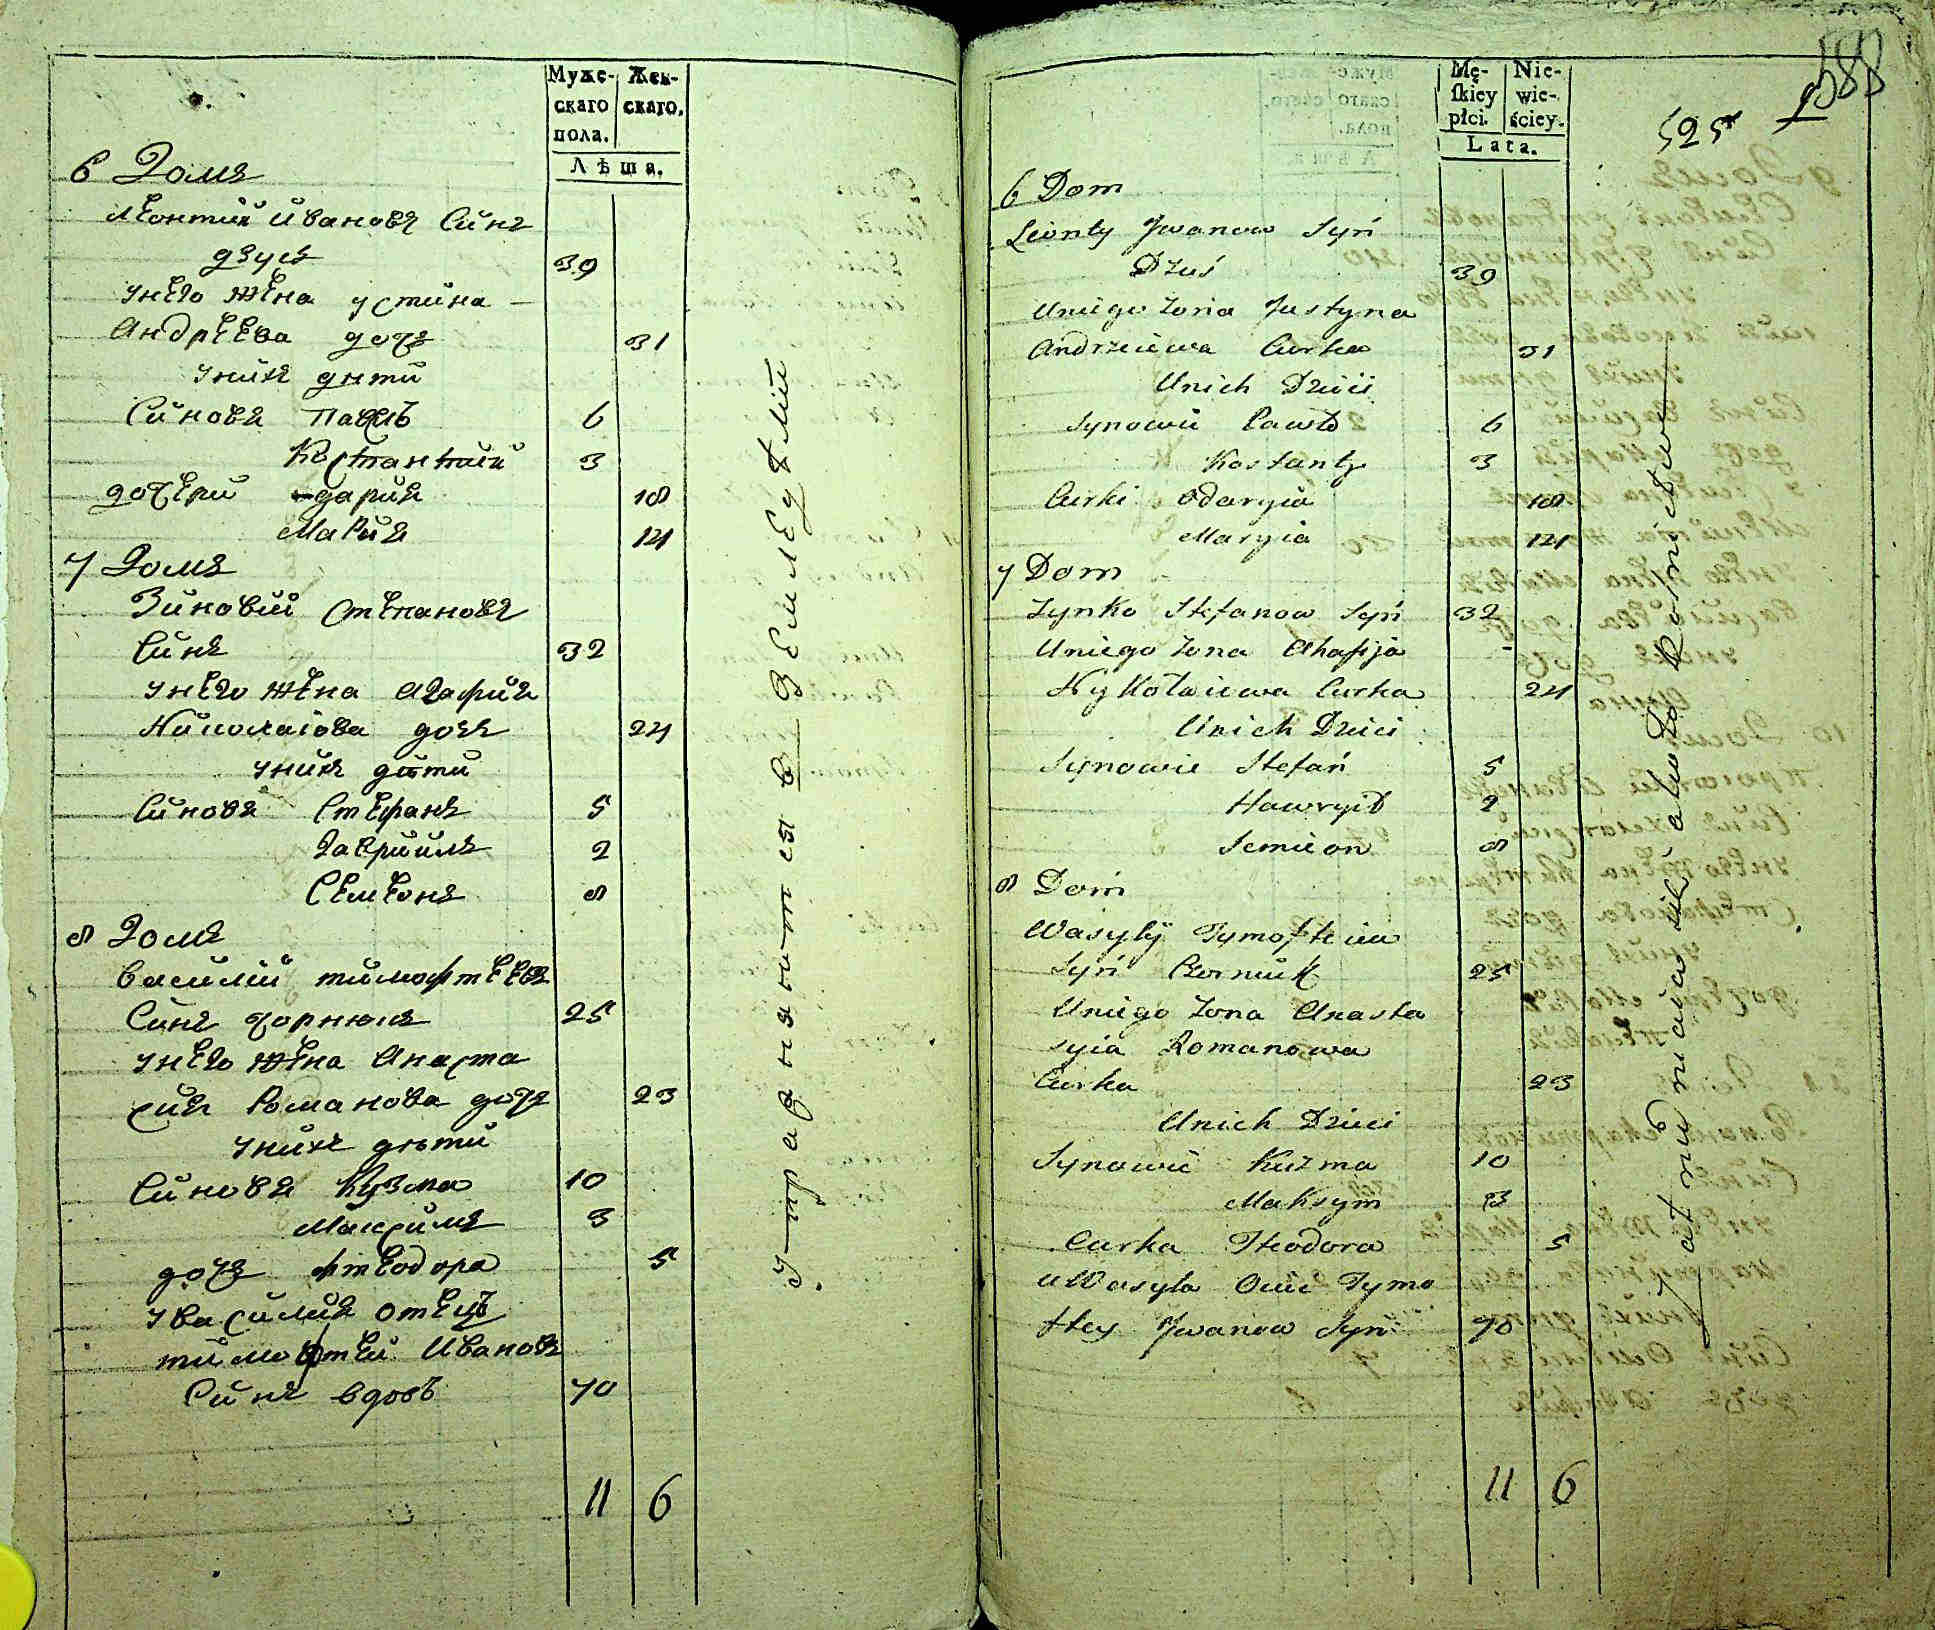 Муже-
скаго
пола.
Жен-
скаго.
Лѣта.
6 Домъ
Леонтий Ивановъ Синъ
дзусъ 39
унего жена устина
Андреева дочъ 31
унихъ дѣти
Синовя Павелъ 6
Костантий 3
дочери одария 18
Мария 14
7 Домъ
Зиновий Степановъ
Синъ 32
унего жена агафия
Николаiова дочъ 24
унихъ дѣти
Синовя Стефанъ 5
Гавриилъ 2
Семенъ 8
8 Домъ
Василий тимофтеевъ
Синъ чорнюкъ 25
унего жена Анаста
сия Романова дочъ 23
унихъ дѣти
Синовя Кузма 10
Максимъ 3
дочъ фтеодора 5
уВасилия отецъ
тимофтей Ивановъ
Синъ вдовъ 70
11 6
Упражняются в Земледелий
588
525
Mę-
skiey
płci.
Nie-
wie-
ściey.
Lata.
6 Dom
Leonty Jwanow Syń
Dzuś 39
Uniego żona Justyna
Andrzeiewa Curka 31
Unich Dzieci
Synowie Paweł 6
Kostanty 3
Curki Odaryia 18
Maryia 14
7 Dom
Zynko Stefanow Syń 32
Uniego żona Ahafija
Nykołaiewa Curka 24
Unich Dzieci
Synowie Stefań 5
Hawryił 2
Semieon 8
8 Dom
Wasylÿ Tymofteiew
Syń Czorniuk 25
Uniego żona Anasta
syia Romanowa
Curka 23
Unich Dzieci
Synowie Kuzma 10
Maksym 3
Curka Fteodora 5
u Wasyla Ociec Tymo
ftey Jwanow Syń 70
11 6